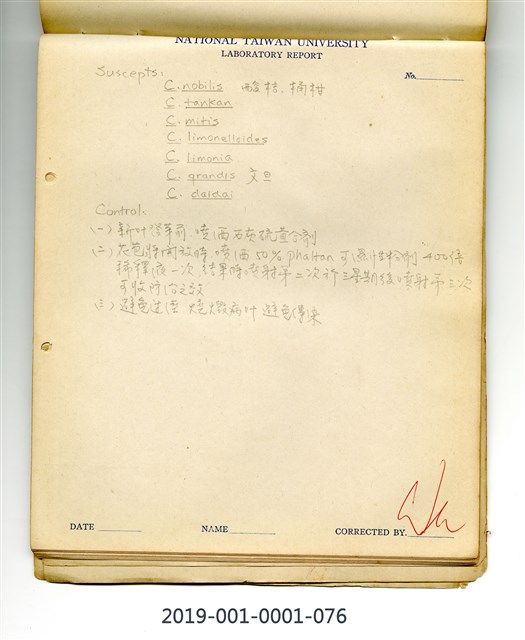 NATIONAL TAIWAN UNIVERSITY
LABORATORY REPORT
No.
Suscepts:
C. nobilis 酸桔, 椪柑
C. tankan
C. mitis
C. limonelloides
C. limonia
C. grandis 文旦
C. daidai
Control:
(一) 新叶萌芽前 噴洒石灰硫黃合剂
(二) 花苞將開放時, 噴洒 50% phaltan 可濕性粉剂 400倍
稀釋液一次, 結果時噴射第二次 三星期後噴射第三次
可收防治之效
(三) 避免 燒燬病叶 避免傳染
DATE
NAME
CORRECTED BY.
2019-001-0001-076